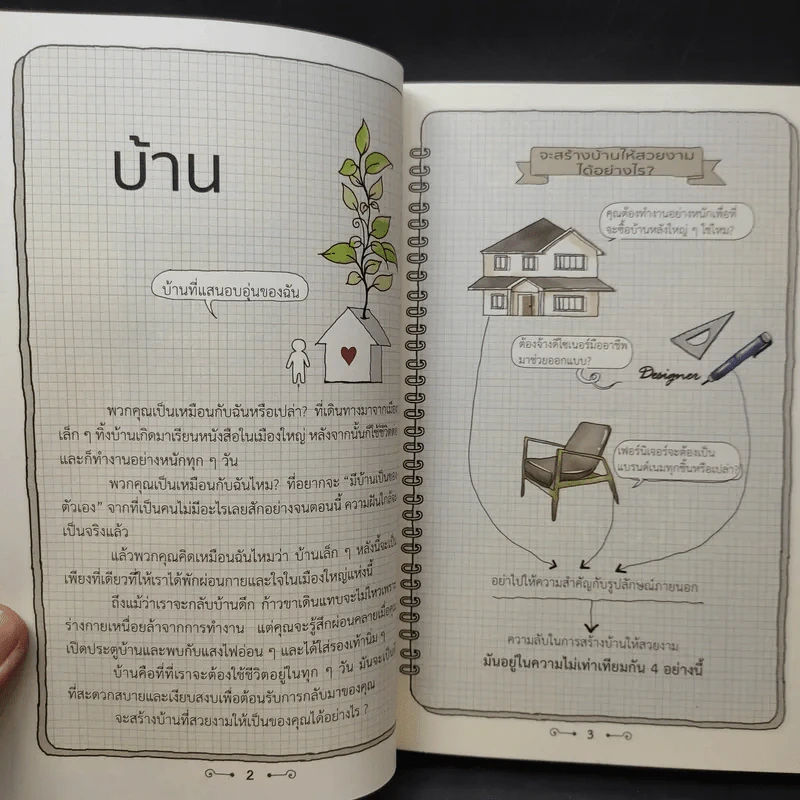 บ้าน
บ้านที่แสนอบอุ่นของฉัน
พวกคุณเป็นเหมือนกับฉันหรือเปล่า? ที่เดินทางมาจากเมือง
เล็ก ๆ ทิ้งบ้านเกิดมาเรียนหนังสือในเมืองใหญ่ หลังจากนั้นก็ใช้ชีวิต
และก็ทำงานอย่างหนักทุก ๆ วัน
พวกคุณเป็นเหมือนกับฉันไหม? ที่อยากจะ “มีบ้านเป็นของ
ตัวเอง” จากที่เป็นคนไม่มีอะไรเลยสักอย่างจนตอนนี้ ความฝันใกล้จะ
เป็นจริงแล้ว
แล้วพวกคุณคิดเหมือนฉันไหมว่า บ้านเล็ก ๆ หลังนี้จะเป็น
เพียงที่เดียวที่ให้เราได้พักผ่อนกายและใจในเมืองใหญ่แห่งนี้
ถึงแม้ว่าเราจะกลับบ้านดึก ก้าวขาเดินแทบจะไม่ไหวเพราะ
ร่างกายเหนื่อยล้าจากการทำงาน แต่คุณจะรู้สึกผ่อนคลายเมื่อคุณ
เปิดประตูบ้านและพบกับแสงไฟอ่อน ๆ และได้ใส่รองเท้านิ่ม ๆ
บ้านคือที่ที่เราจะต้องใช้ชีวิตอยู่ในทุก ๆ วัน มันจะเป็น
ที่สะดวกสบายและเงียบสงบเพื่อต้อนรับการกลับมาของคุณ
จะสร้างบ้านที่สวยงามให้เป็นของคุณได้อย่างไร ?
2
จะสร้างบ้านให้สวยงาม
ได้อย่างไร?
คุณต้องทำงานอย่างหนักเพื่อที่
จะซื้อบ้านหลังใหญ่ ๆ ใช่ไหม?
ต้องจ้างดีไซเนอร์มืออาชีพ
มาช่วยออกแบบ?
Designer
เฟอร์นิเจอร์จะต้องเป็น
แบรนด์เนมทุกชิ้นหรือเปล่า?
อย่าไปให้ความสำคัญกับรูปลักษณ์ภายนอก
ความลับในการสร้างบ้านให้สวยงาม
มันอยู่ในความไม่เท่าเทียมกัน 4 อย่างนี้
3